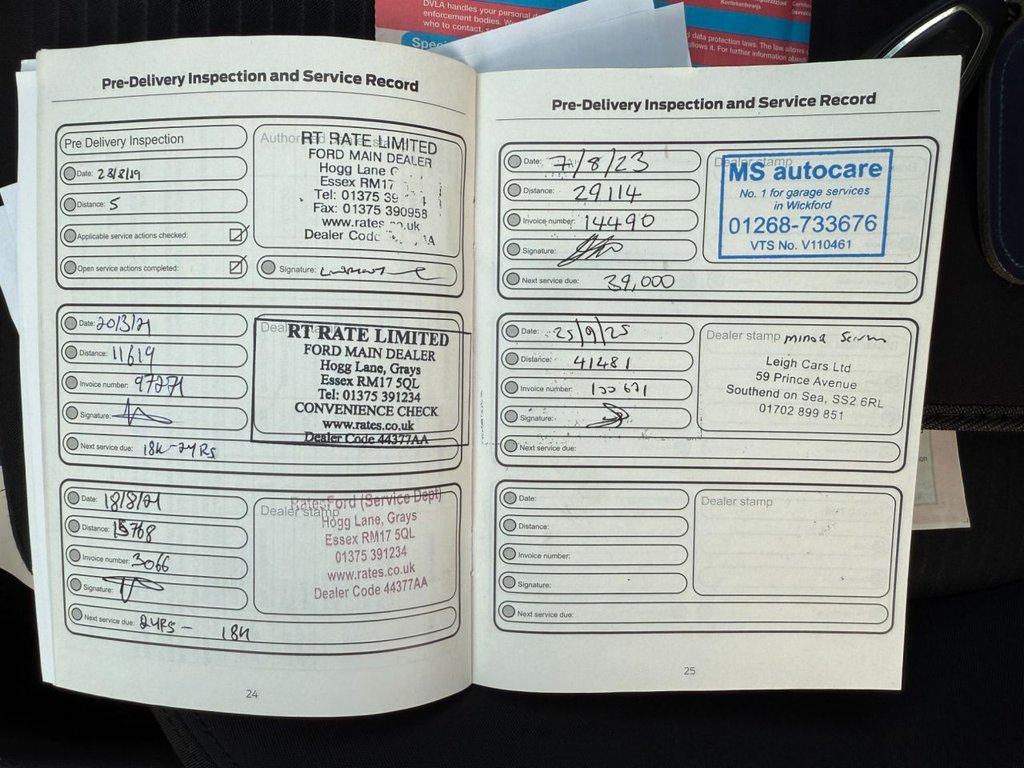 DVLA handles your personal d
enforcement bodies. W
who to contact, s
data protection laws. The law allows
allows it. For further information about
Spec
Pre-Delivery Inspection and Service Record
Pre Delivery Inspection
Date: 28/8/19
Distance: 5
Applicable service actions checked:
Open service actions completed:
RT RATE LIMITED
FORD MAIN DEALER
Hogg Lane
Essex RM17
Tel: 01375 39
Fax: 01375 390958
www.rates.co.uk
Dealer Code
Signature:
Date: 20/3/21
Distance: 11619
Invoice number: 97271
Signature:
Next service due: 18K-2YRS
RT RATE LIMITED
FORD MAIN DEALER
Hogg Lane, Grays
Essex RM17 5QL
Tel: 01375 391234
CONVENIENCE CHECK
www.rates.co.uk
Dealer Code 44377AA
Date: 18/8/21
Distance: 15768
Invoice number: 3066
Signature:
Next service due: 2YRS - 18K
Dealer stamp
RatesFord (Service Dept)
Hogg Lane, Grays
Essex RM17 5QL
01375 391234
www.rates.co.uk
Dealer Code 44377AA
24
Pre-Delivery Inspection and Service Record
Date: 7/8/23
Distance: 29114
Invoice number: 14490
Signature:
Next service due: 39,000
Dealer stamp
MS autocare
No. 1 for garage services
in Wickford
01268-733676
VTS No. V110461
Date: 25/9/25
Distance: 41481
Invoice number: 100671
Signature:
Next service due:
Dealer stamp minor Service
Leigh Cars Ltd
59 Prince Avenue
Southend on Sea, SS2 6RL
01702 899 851
Date:
Distance:
Invoice number:
Signature:
Next service due:
Dealer stamp
25